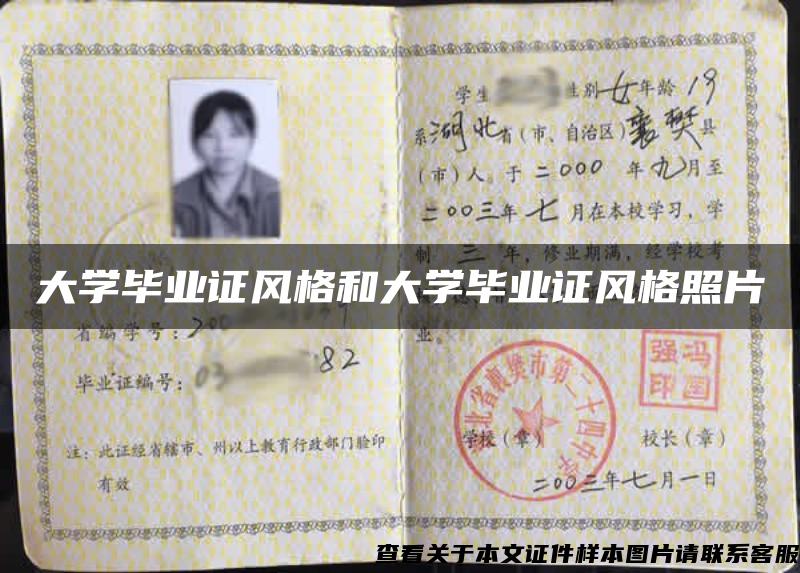 学生 性别女年龄19
系湖北省（市、自治区）襄樊县
（市）人。于二000 年九月至
二00三年七月在本校学习，学
制 三 年，修业期满，经学校考
大学毕业证风格和大学毕业证风格照片
业。
省编学号：200
毕业证编号：03 82
注：此证经省辖市、州以上教育行政部门验印
有效
湖北省襄樊市第二十四中学
冯国强印
学校（章） 校长（章）
二00三年七月一日
查看关于本文证件样本图片请联系客服